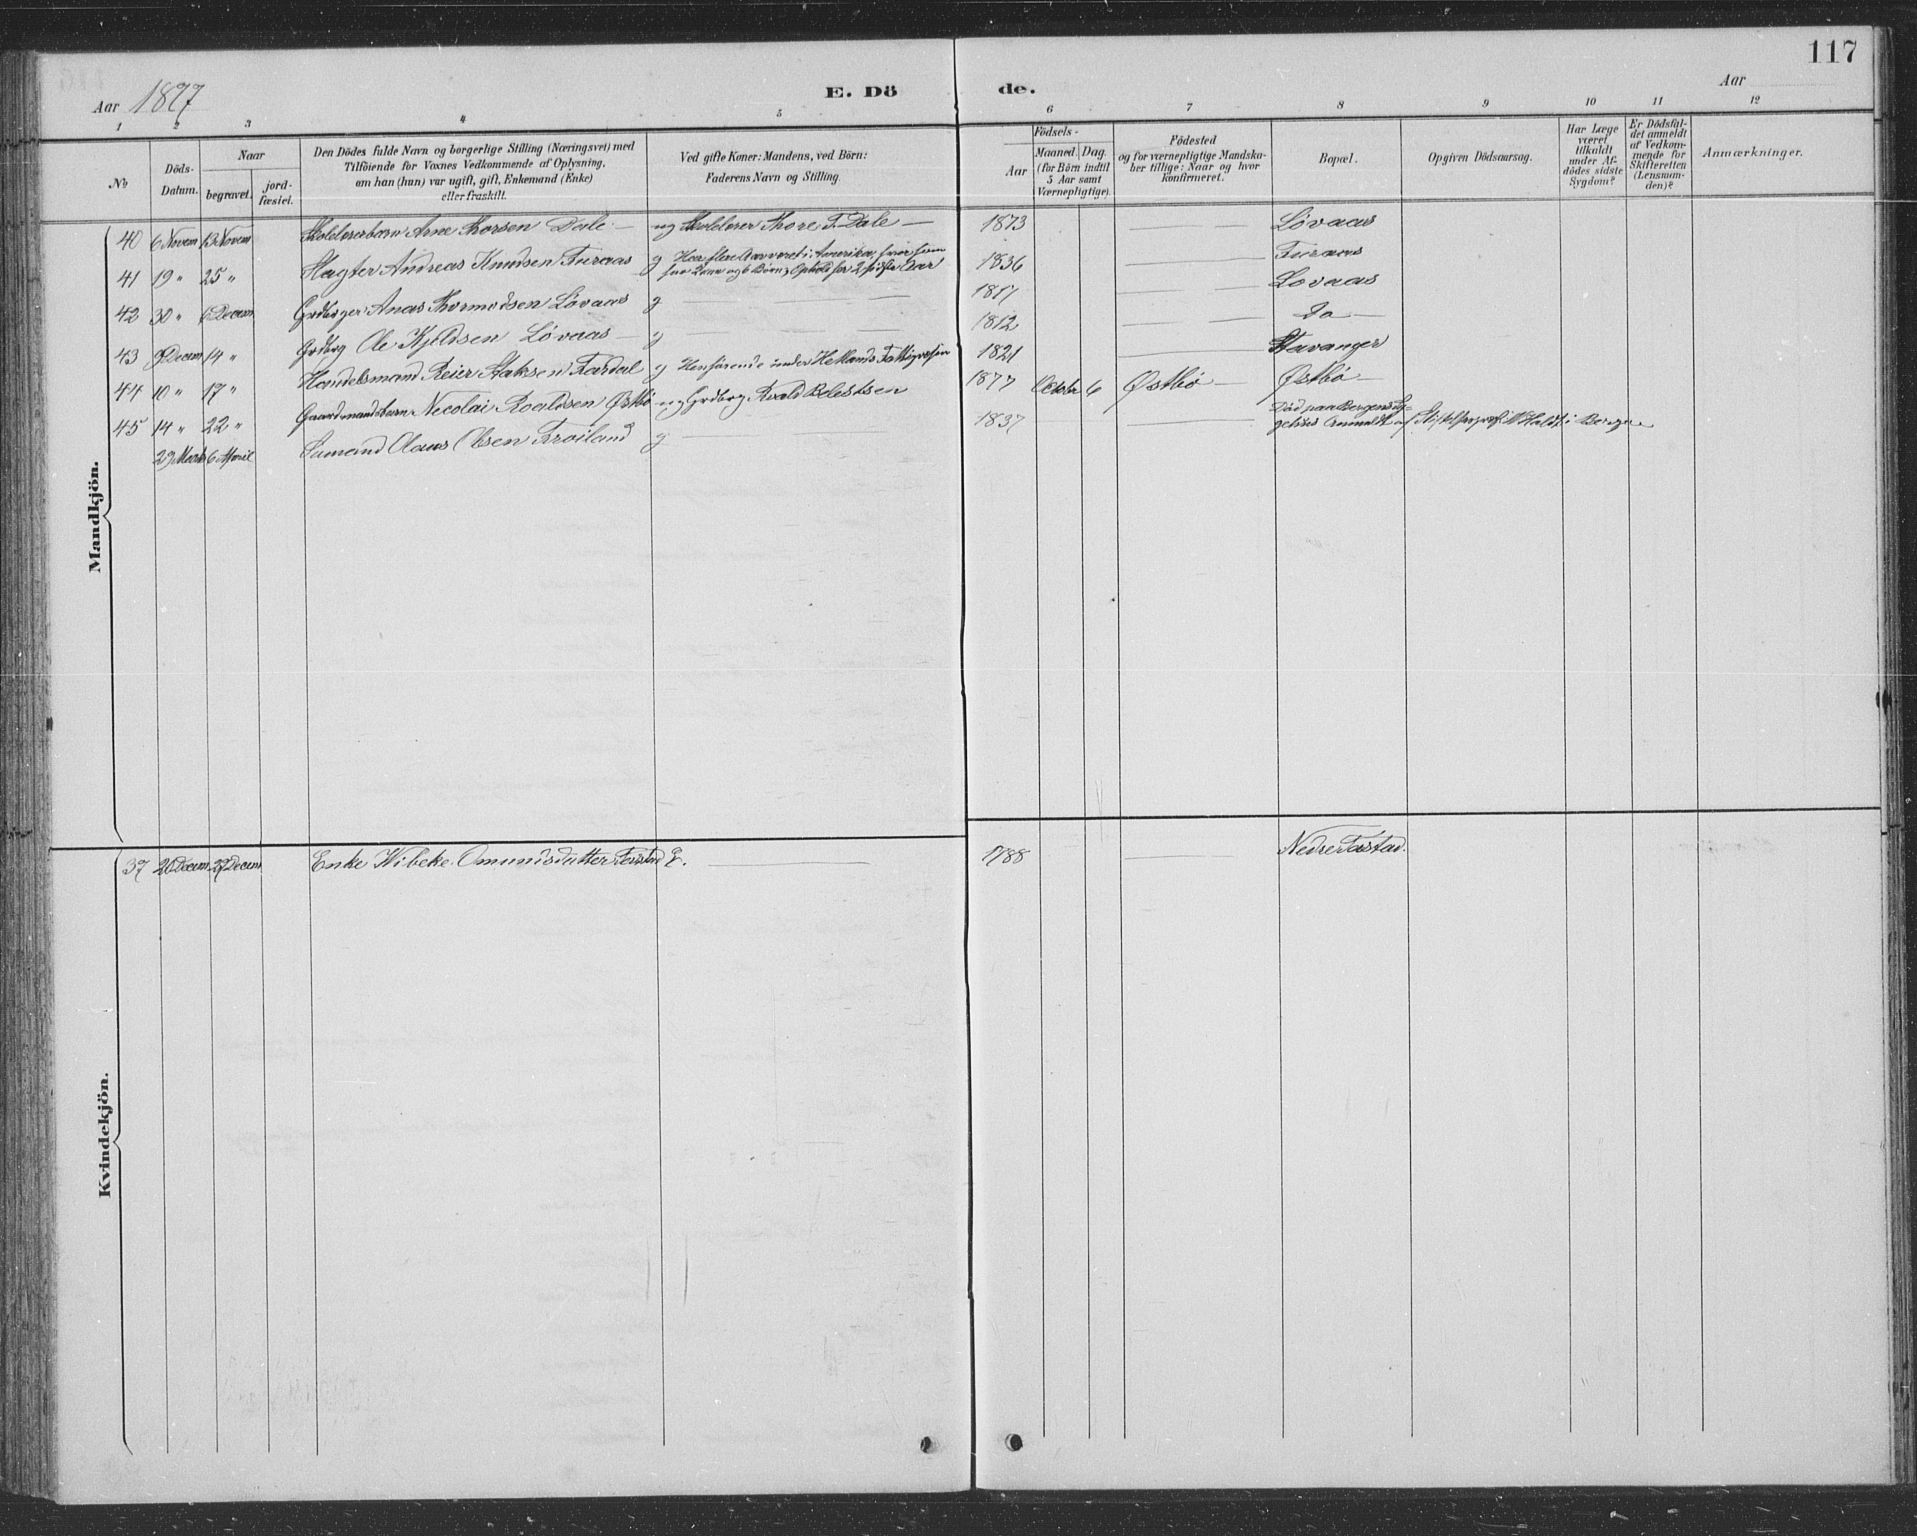 117
Aar 1877 E. Dö de. Aar
1 2 3 4 5 6 7 8 9 10 11 12
No
Döds-
Datum.
Naar
begravet.
jord-
fæstet.
Den Dödes fulde Navn og borgerlige Stilling (Næringsvei) med
Tilföiende for Voxnes Vedkommende af Oplysning,
om han (hun) var ugift, gift, Enkemand (Enke)
eller fraskilt.
Ved gifte Koner: Mandens, ved Börn:
Faderens Navn og Stilling.
Födsels-
Aar
Maaned. Dag.
(for Börn indtil
5 Aar samt
Værnepligtige).
Födested
og for værnepligtige Mandska-
ber tillige: Naar og hvor
konfirmeret.
Bopæl.
Opgiven Dödsaarsag.
Har Læge
været
tilkaldt
under Af-
dödes sidste
Sygdom?
Er Dödsfal-
det anmeldt
af Vedkom-
mende for
Skifteretten
(Lensman-
den)?
Anmærkninger.
Mandkjön.
40 6 Novem 13 Novem Skolelærerbarn Arne Thorsen Dale — ug Skolelærer Thore T. Dale — 1873 — — Løvaas
41 19 " 25 " Slagter Andreas Knudsen Furaas g Har flere Aar været i Amerika, hvor hans 1836 — — Furaas
og 6 Børn Ophold for 2 sidste Aar
42 30 " 6 Decem Grdbrger Anas Thormodsen Lovaas g — — 1817 — — Lovaas
43 9 Decem 14 " Grdbrg Ole Kjeldsen Løvaas — g — — 1812 — — Do —
44 10 " 17 " Handelsmand Reier Fardal g Henhørende under Hetlands Fattigvæsen 1821 — Stavanger
45 14 " 22 " Gaardmandsbarn Nicolai Roaldsen Østbø ug Grdbrg Roald 1877 Octobr 6 Østbø — Østbø —
29 Marts 6 April Sømand Claus Olsen Frøiland g — — 1837 — — Död paa Bergens Sy-
gehus Anmeldt af i Bergen
Kvindekjön.
37 20 Decem 27 Decem Enke Wibeke Omundsdutter Tastad g. — 1788 — Nedre Tastad.